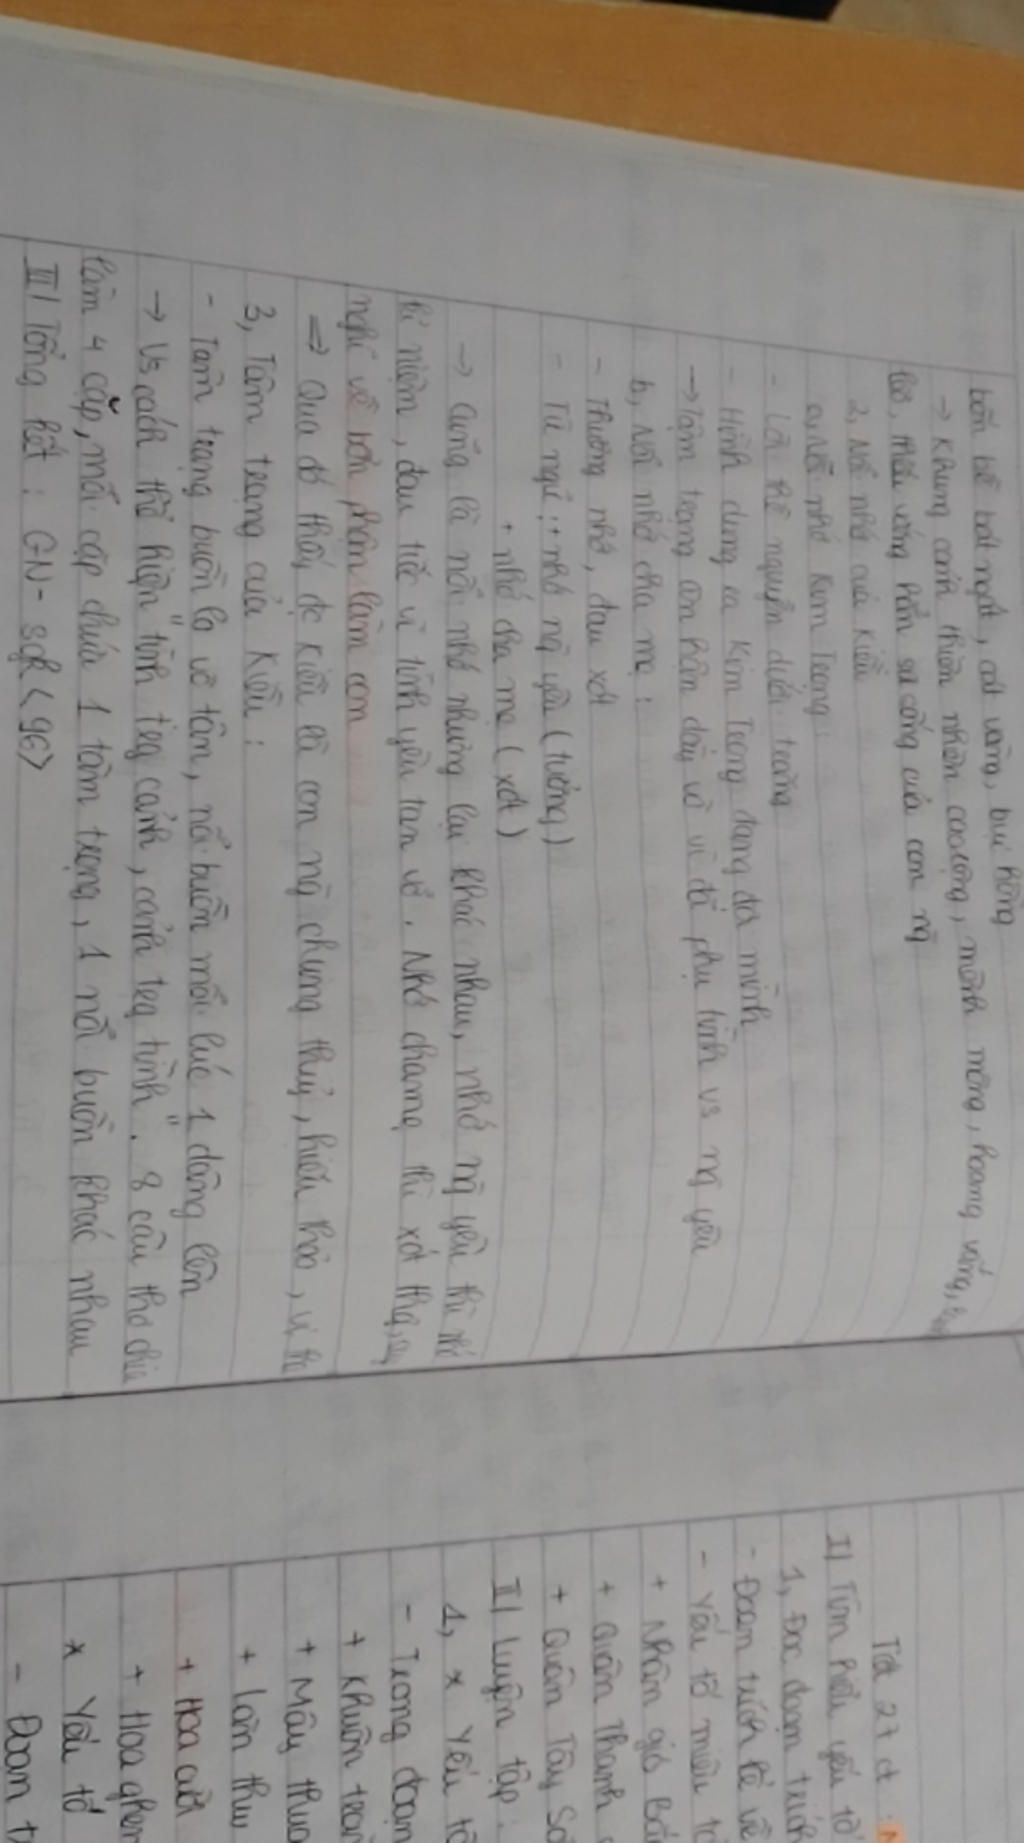 bốn bề bát ngát, cát vàng, bụi hồng
→ Khung cảnh thiên nhiên cao rộng, mênh mông, hoang vắng,
thiếu vắng hẳn sự sống của con ng
2, Nỗi nhớ của Kiều
a, Nỗi nhớ Kim Trọng
- Lời thề nguyện dưới trăng
- Hình dung ra Kim Trọng đang đợi mình
→ Tâm trạng ân hận dày vò vì đã phụ tình vs ng yêu
b, Nỗi nhớ cha mẹ :
- Thương nhớ, đau xót
- Từ ngữ : + nhớ ng yêu (tưởng)
+ nhớ cha mẹ (xót)
→ Cũng là nỗi nhớ nhưng lại khác nhau, nhớ ng yêu thì nhớ
kỉ niệm, đau tiếc vì tình yêu tan vỡ. Nhớ cha mẹ thì xót thg, suy
nghĩ về bổn phận làm con
=> Qua đó thấy đc Kiều là con ng chung thuỷ, hiếu thảo, vị tha
3, Tâm trạng của Kiều :
- Tâm trạng buồn lo vô tận, nỗi buồn mỗi lúc 1 dâng lên
→ Vs cách thể hiện "tình trg cảnh, cảnh trg tình". 8 câu thơ chia
làm 4 cặp, mỗi cặp chứa 1 tâm trạng, 1 nỗi buồn khác nhau
III/ Tổng kết : GN - sgk <96>
Tiết 27 ct :
I/ Tìm hiểu yếu tố
1, Đọc đoạn trích
- Đoạn trích kể về
- Yếu tố miêu tả
+ Nhân gió Bắc
+ Quân Thanh
+ Quân Tây Sơ
II/ Luyện tập :
1, * Yếu tố
- Trong đoạn
+ Khuôn trăn
+ Mây thua
+ Làn thu
+ Hoa cười
+ Hoa ghen
* Yếu tố
- Đoạn t